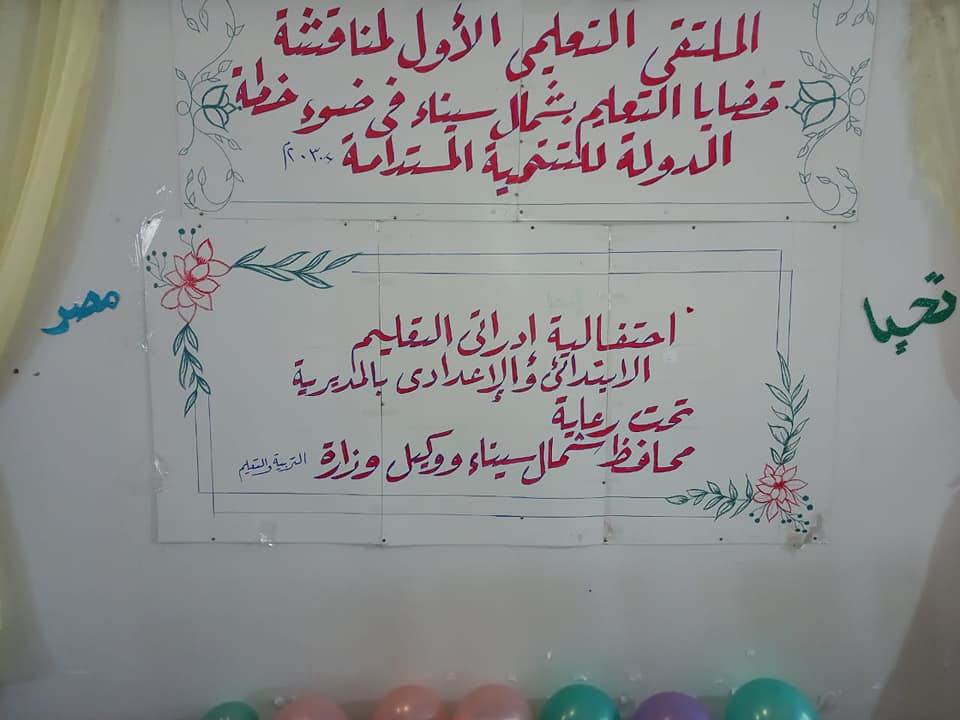 الملتقى التعليمى الأول لمناقشة
قضايا التعليم بشمال سيناء فى ضوء خطة
الدولة للتنمية المستدامة ٢٠٣٠م
تحيا
مصر
احتفالية إدراتى التعليم
الابتدائى والإعدادى بالمديرية
تحت رعاية
محافظ شمال سيناء ووكيل وزارة التربية والتعليم